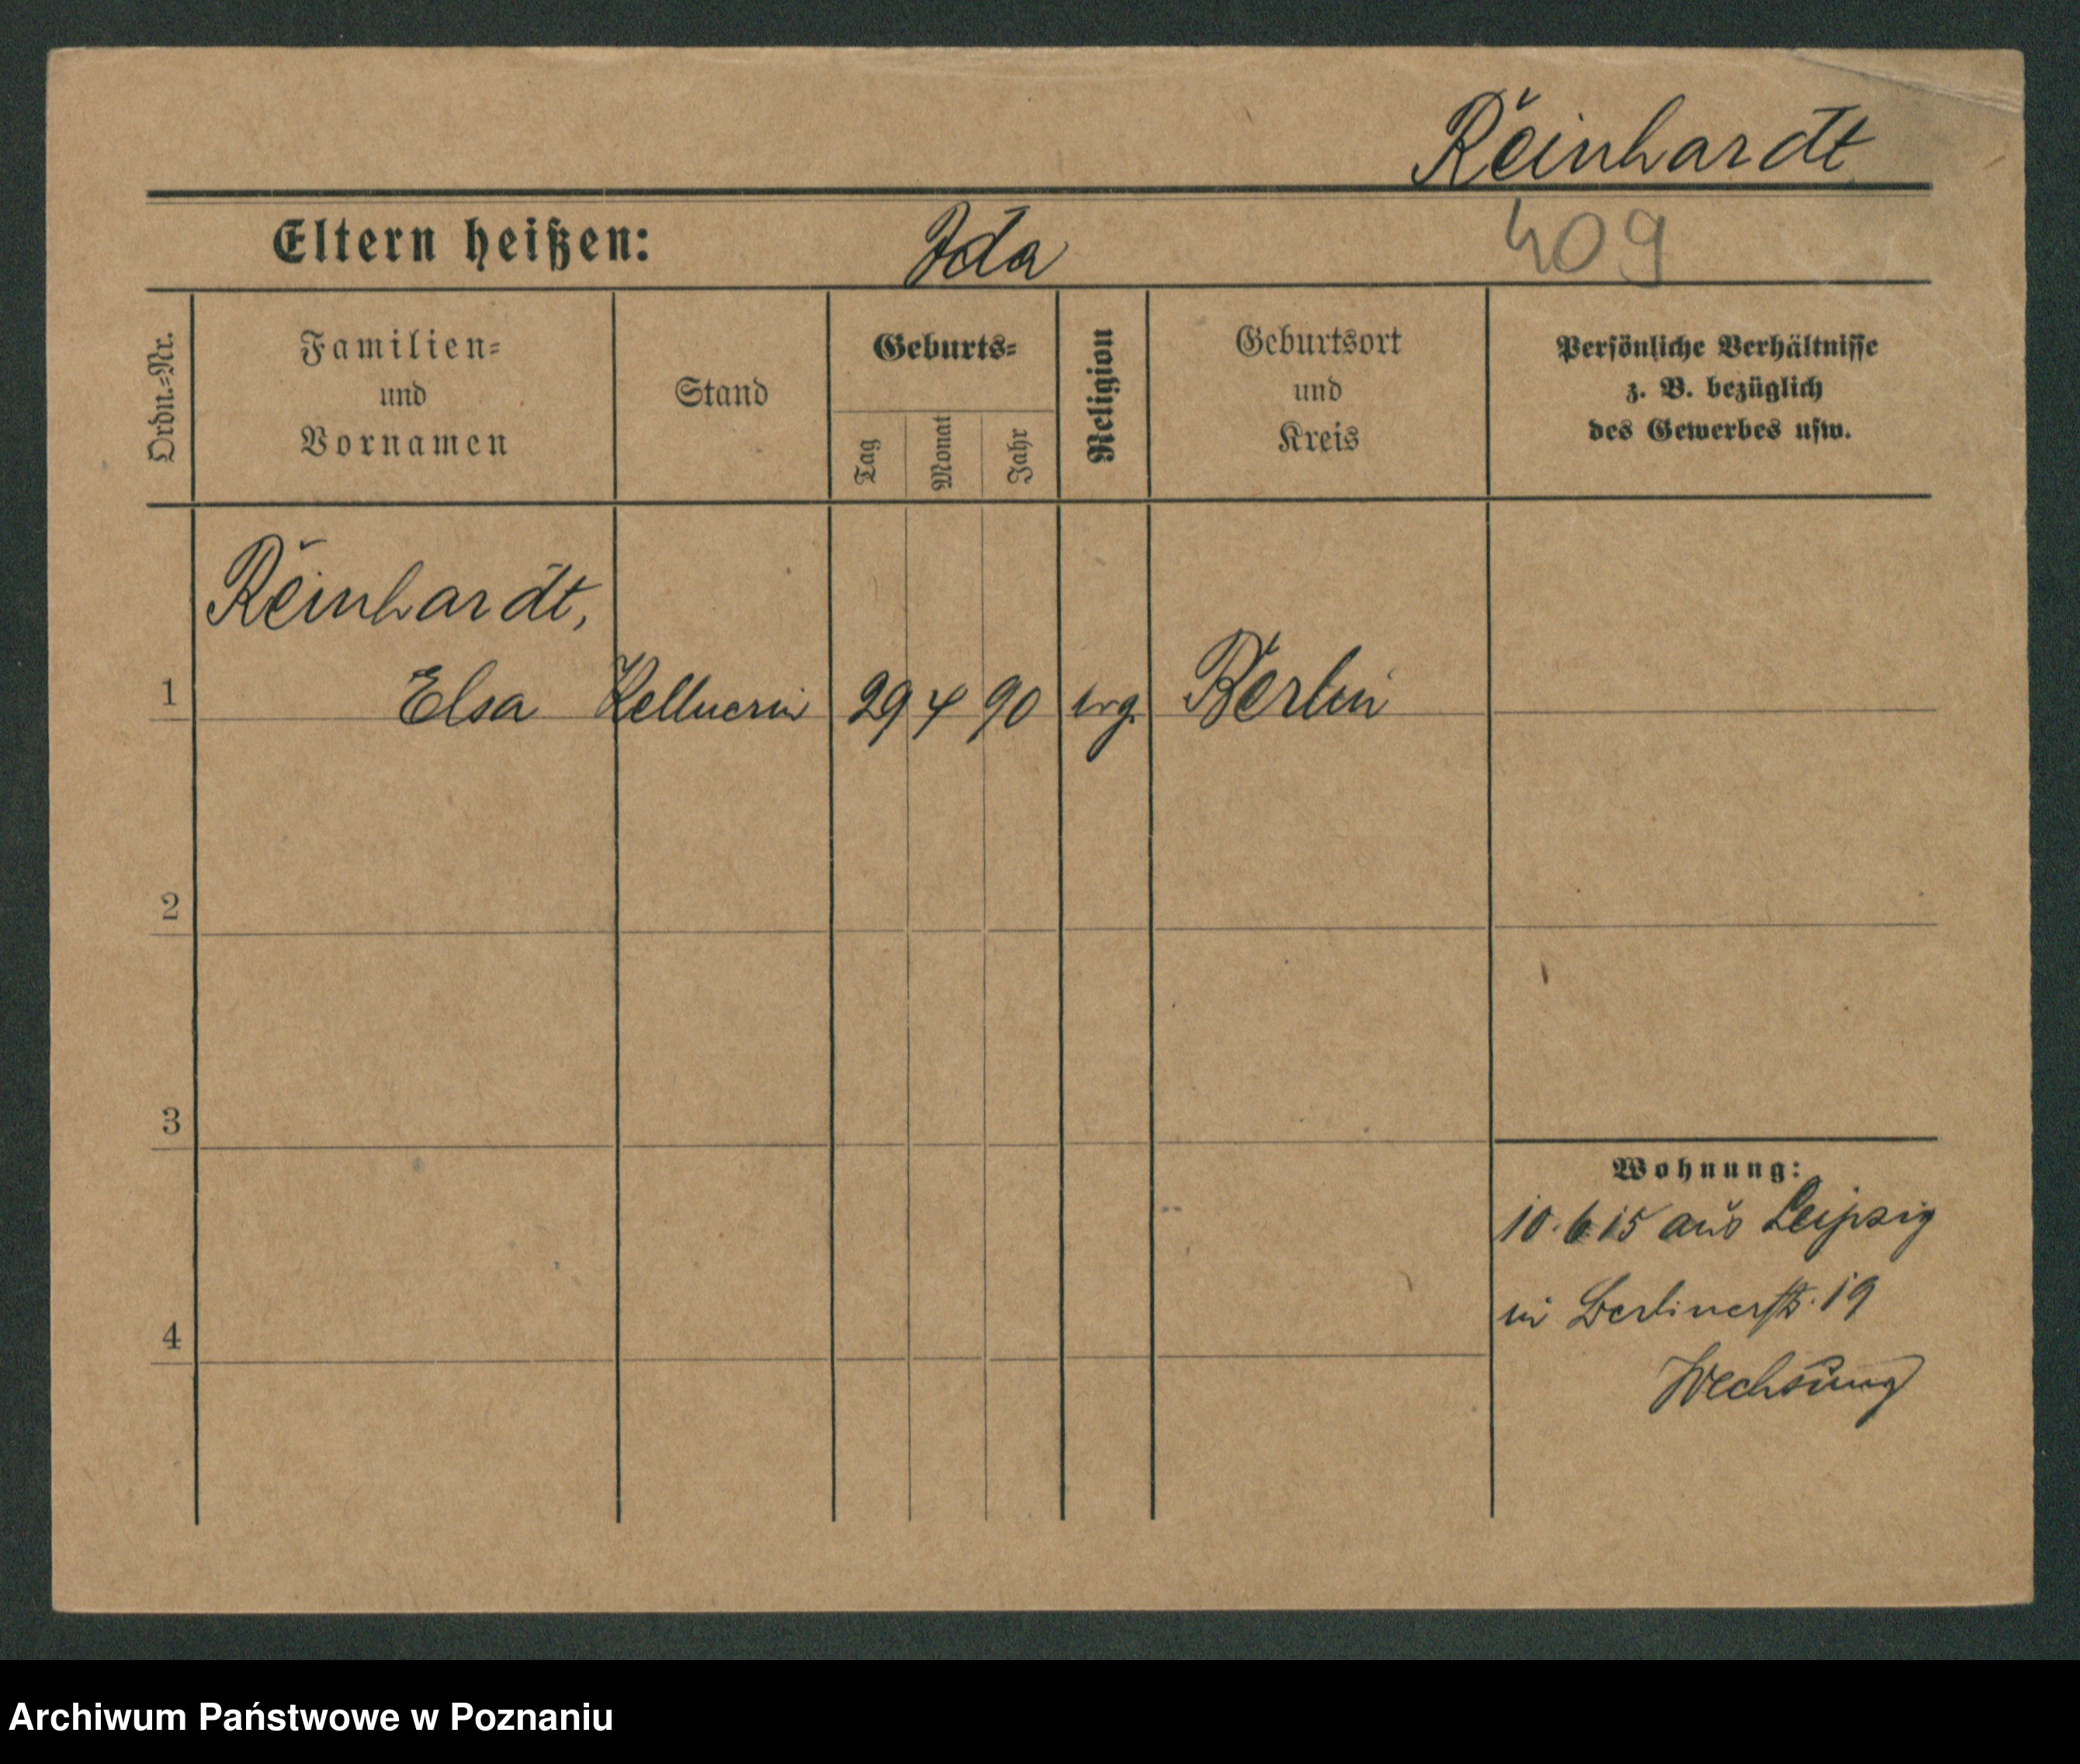 Reinhardt
Eltern heißen: Ida 409
Ordn.-Nr.
Familien-
und
Vornamen
Stand
Geburts-
Tag
Monat
Jahr
Religion
Geburtsort
und
Kreis
Persönliche Verhältnisse
z. B. bezüglich
des Gewerbes usw.
Reinhardt,
1 Elsa Kellnerin 29 4 90 evg. Berlin
2
3
4
Wohnung:
10.6.15 aus Leipzig
in Berlinerstr. 19
Wechsung
Archiwum Państwowe w Poznaniu